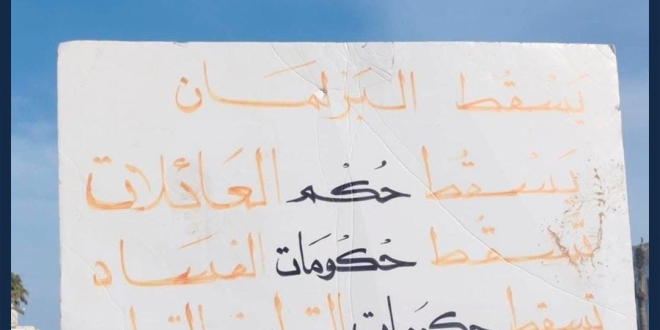 يَسْقُط البَرْلمَان
يَسْقُط حُكْم العَائلات
تَسقُط حُكُومَات الفسَاد
تسقط حكومات